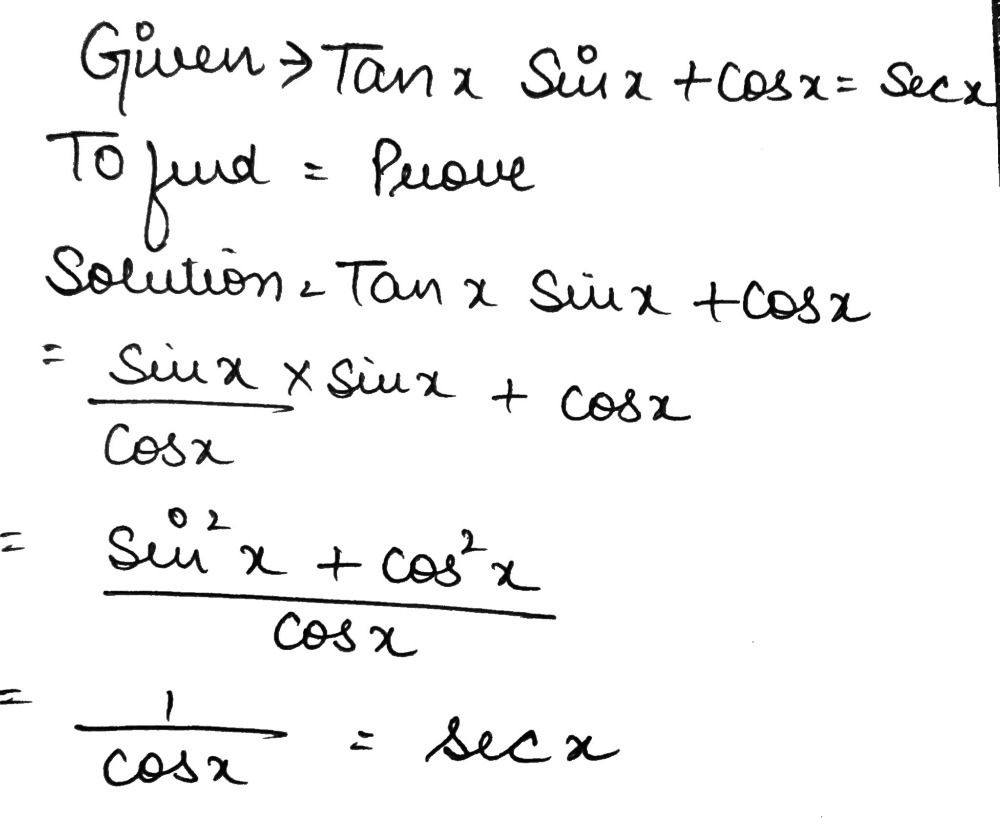 Given → Tan x Sin x + cos x = Sec x
To find = Prove
Solution = Tan x Sin x + cos x
= Sin x / Cos x × Sin x + cos x
= Sin² x + cos² x / cos x
= 1 / cos x = sec x